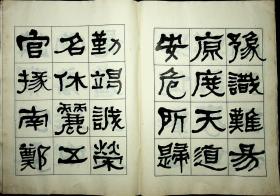 豫識難易
原度天道
安危所歸
勤竭誠榮
名休麗五
官掾南鄭